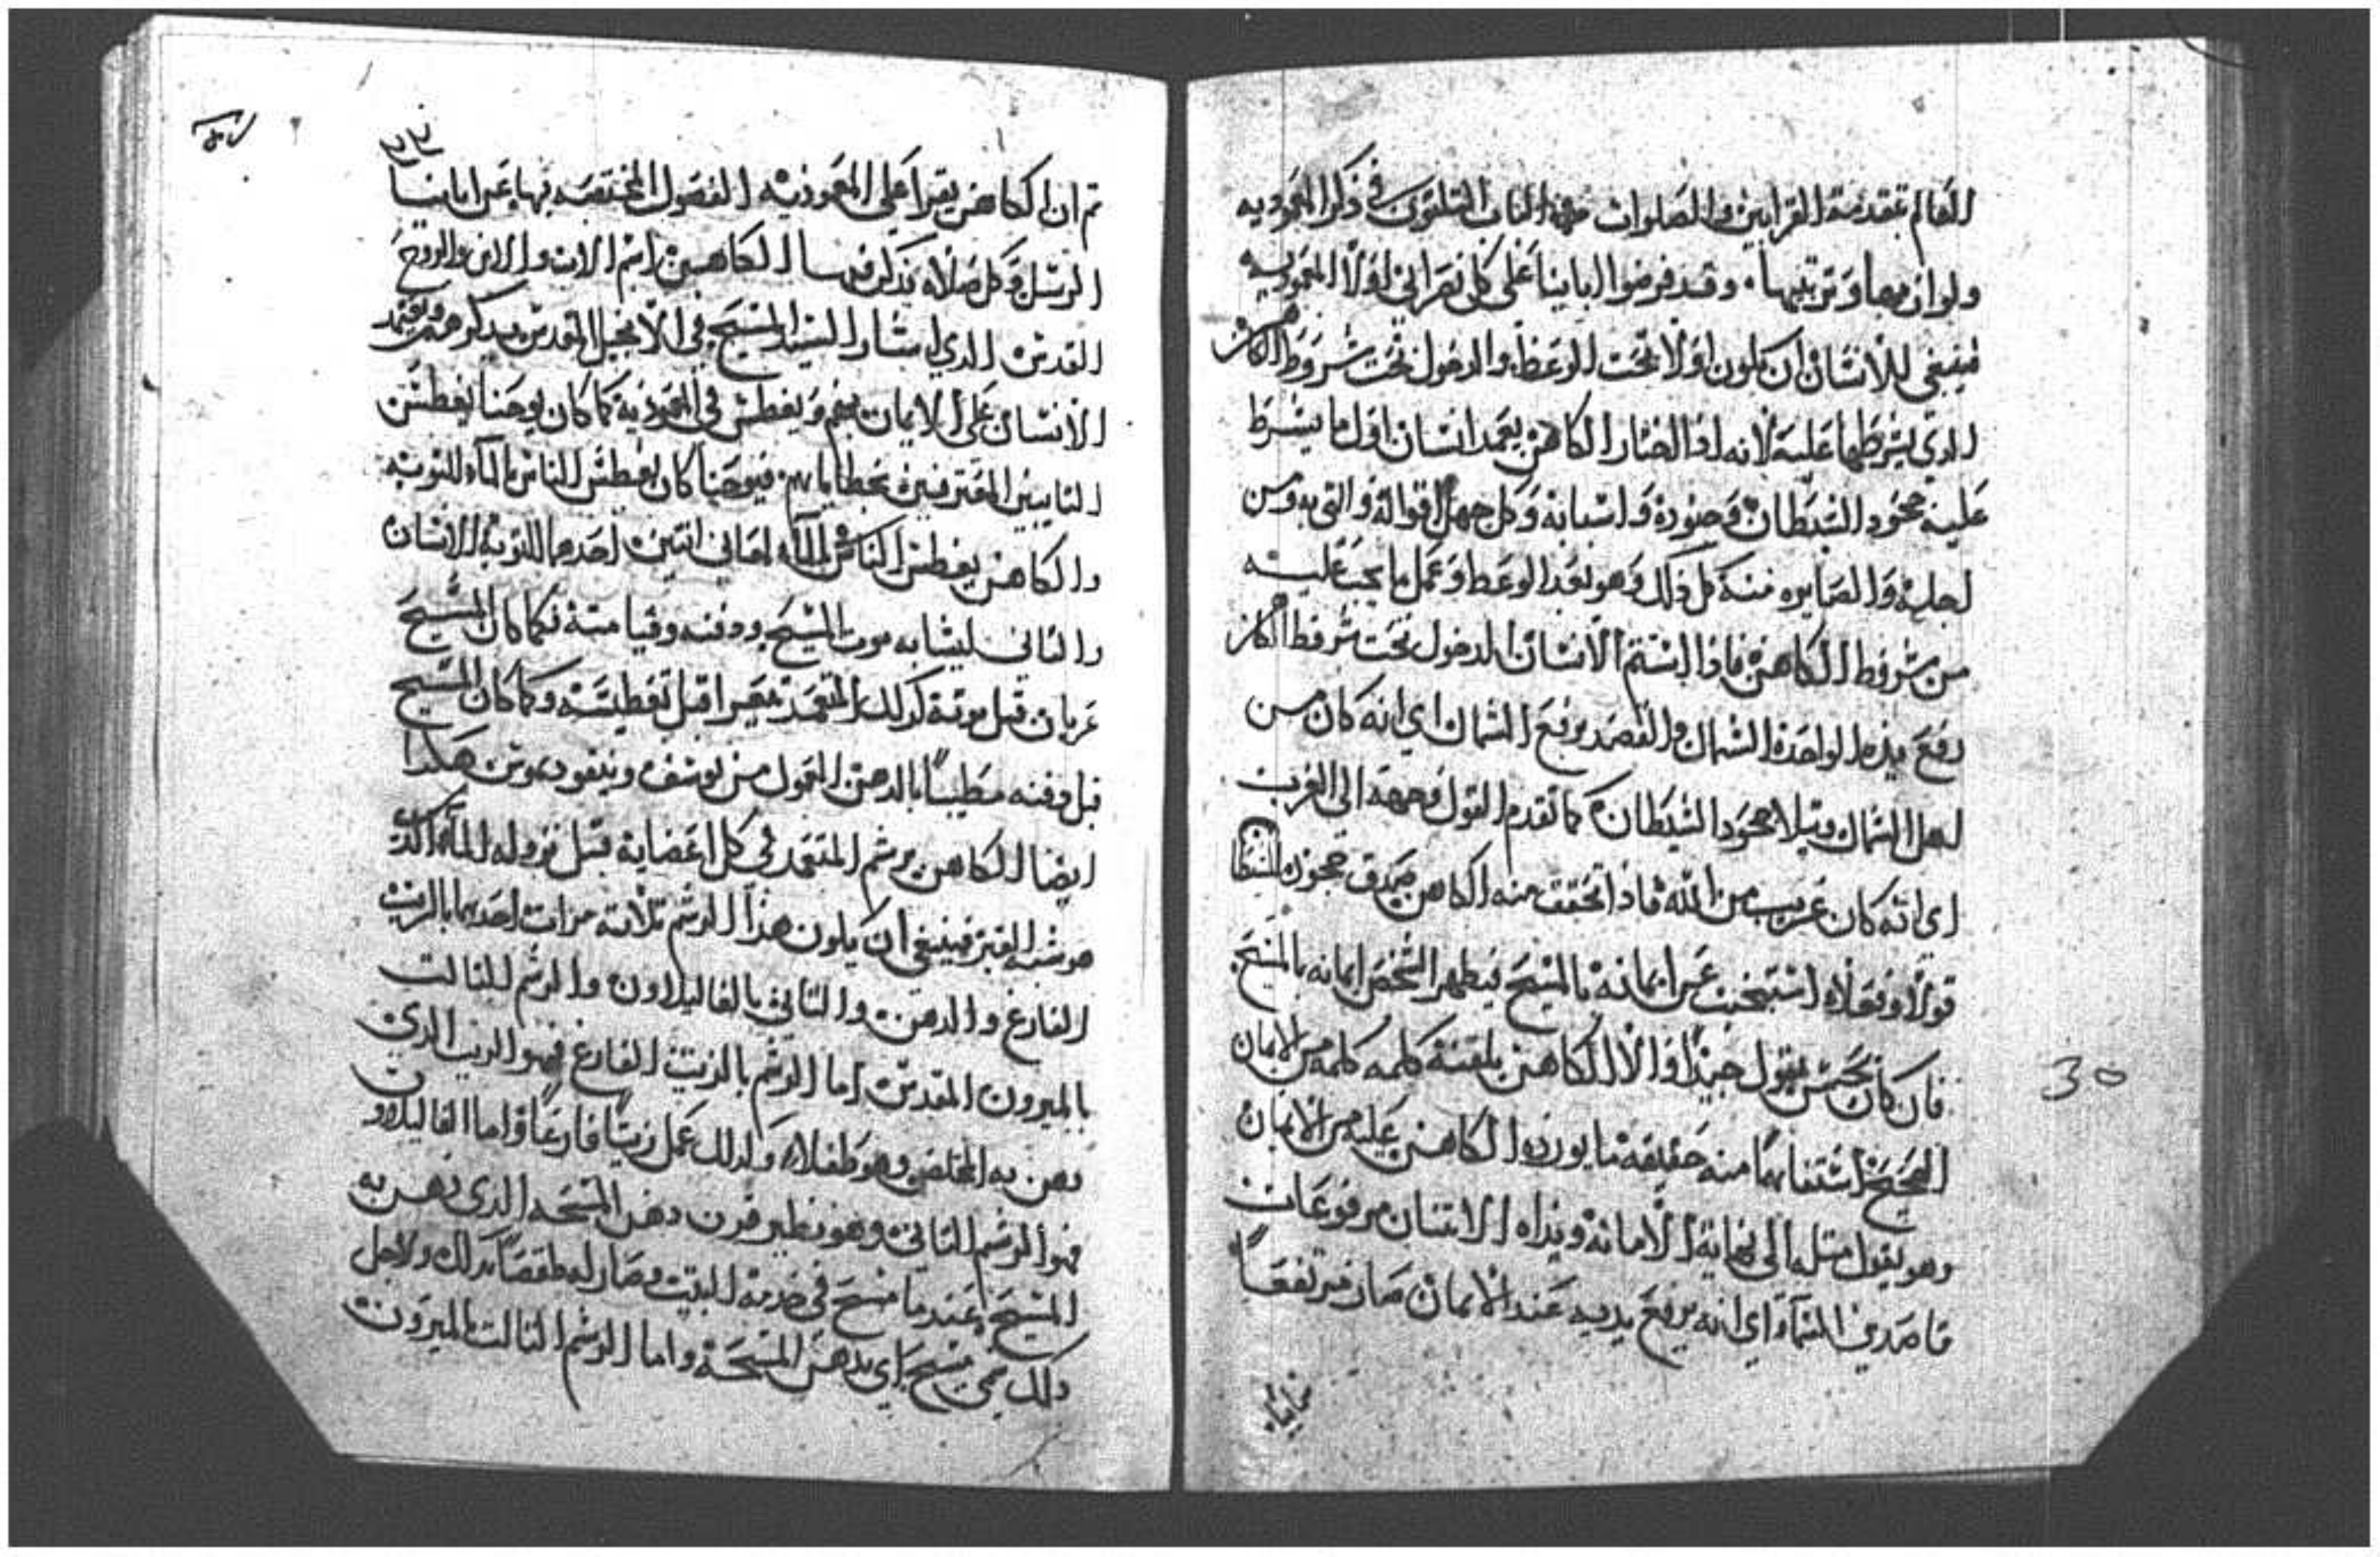 العالم بتقدمة القرابين والصلوات الباب الثلثون في ذكر المعموديه
ولوازمها وترتيبها وقد فرضوا ابائنا على كل نصراني اولا المعموديه
فينبغي للانسان ان يكون اولا تحت الوعظ والدخول تحت شروط الكاهن
الذي يشرطها عليه لانه اذا اختار الكاهن يعمد انسان اول ما يشرط
عليه جحود الشيطان وجنوده واسبابه وكل جهل اقواله والتوبه من
اجله والصايره منه كل ذلك وهو بعد الوعظ وعمل ما يجب عليه
من شروط الكاهن فاذا استتم الانسان الدخول تحت شروط الكاهن
رفع يده الواحده الشمال والقصد برفع الشمال اي انه كان من
اهل الشمال وتلا جحود الشيطان كما تقدم القول وجهه الى الغرب
اي انه كان غريب من الله فاذا تحقق منه الكاهن صدق جحوده الشيطان
قولا وفعلا استبحت عن ايمانه بالمسيح فيظهر الشخص ايمانه بالمسيح
فان كان يحسن يقول جيدا والا الكاهن يلقنه كلمه كلمه من الايمان
الصحيح استفهاما منه حقيقه ما يورده الكاهن عليه من الايمان
وهو يقول مثله الى نهاية الامانه ويداه الاتنتان مرفوعات
قاصدين السماء اي انه يرفع يديه عند الايمان صار مرتفعا
30
ثم ان الكاهن يقرا على المعموديه الفصول المختصه بها عن ابائنا
الرسل وكل صلاه يذكر فيها الكاهن اسم الاب والابن والروح
القدس الذي اشار السيد المسيح في الانجيل المقدس بذكرهم ويعتمد
الانسان على الايمان بهم ويغطس في المعموديه كما كان يوحنا يغطس
التايبين المعترفين بخطاياهم فيوحنا كان يغطس الناس بالماء للتوبه
والكاهن يغطس الناس بالماء لمعاني اتنين احدهما للتوبه للانسان
والتاني ليشابه موت المسيح ودفنه وقيامته فكما كان المسيح
عريان قبل موته كذلك المتعمد يتعرا قبل تغطيسه وكما كان المسيح
قبل دفنه مطيبا بالدهن المحمول من يوسف ونيقوديموس هكذا
ايضا الكاهن يرشم المتعمد في كل اعضايه قبل نزوله الماء الذي
هو شبه القبر فينبغي ان يكون هذا الرشم تلاتة مرات احدهما بالزيت
الفارغ والدهن والتاني بالغاليلاون والرشم التالت
بالميرون المقدس اما الرشم بالزيت الفارغ فهو الزيت الذي
دهن به المخلص وهو طفلا ولذلك عمل زيتا فارغا واما الغاليلاون
فهو الرشم التاني وهو نظير قرن دهن المسحه الذي دهن به
المسيح عندما مسح في خدمة البيت وصار له طقسا بذلك ولاجل
ذلك سمي مسيح اي بدهن المسحه واما الرشم التالت بالميرون